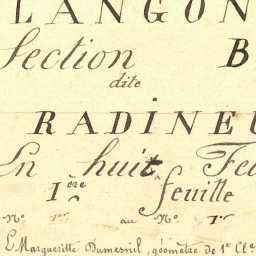 LANGON
Section B
dite
RADINEU
En huit Feu
1ère feuille
N° 1 au N° 1
E. Marqueritte Dumesnil, géomètre de 1e Cle